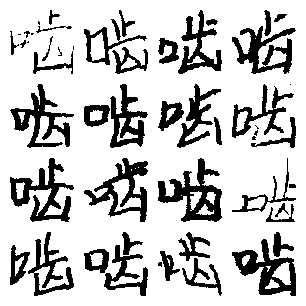 啮啮啮啮
啮啮啮啮
啮啮啮啮
啮啮啮啮